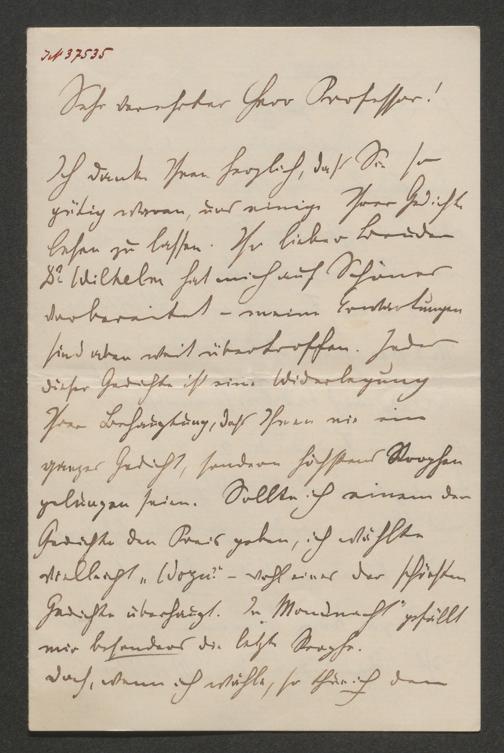 IN 37535
Sehr verehrter Herr Professor!
Ich danke Ihnen herzlich, daß Sie so
gütig waren, uns einige Ihrer Gedichte
lesen zu lassen. Ihr lieber Bruder
Dr Wilhelm hat mich auf Schönes
vorbereitet – meine Erwartungen
sind aber weit übertroffen. Jedes
dieser Gedichte ist eine Widerlegung
Ihrer Behauptung, daß Ihnen nie ein
ganzes Gedicht, sondern höchstens Strophen
gelungen seien. Sollte ich einem der
Gedichte den Preis geben, ich wählte
vielleicht „Wozu?" – wohl eines der schönsten
Gedichte überhaupt. In „Mondnacht" gefällt
mir besonders die letzte Strophe.
Doch, wenn ich wähle, so thue ich dem